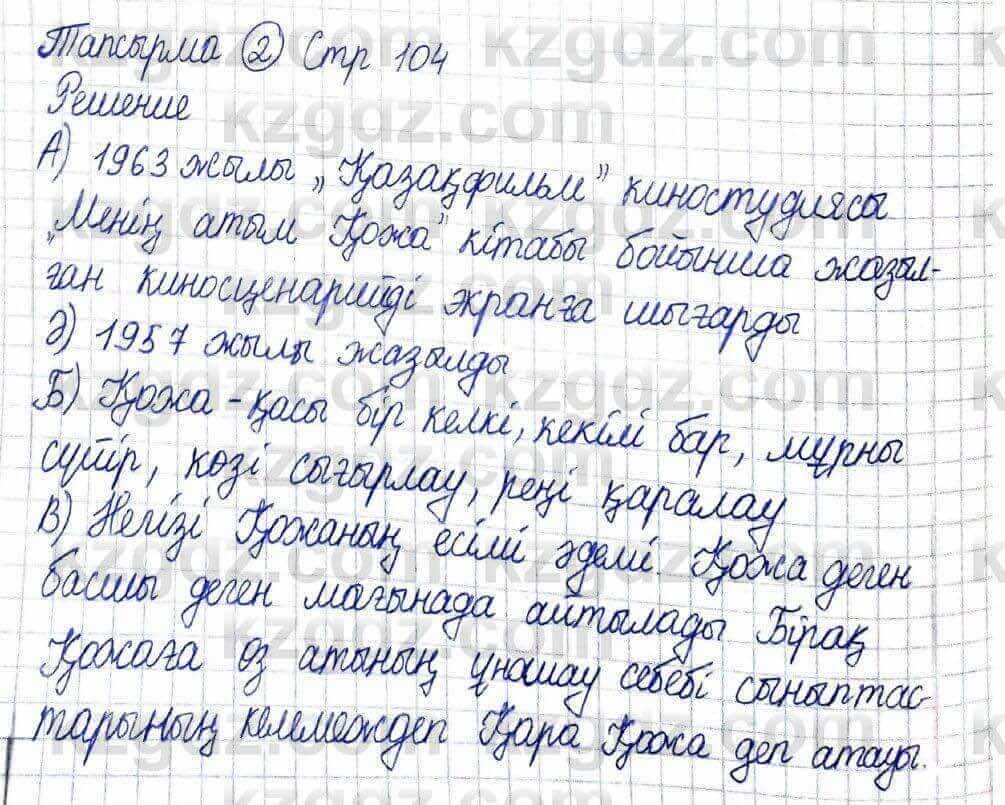 Тапсырма ② Стр 104
Решение
А) 1963 жылы „Қазақфильм” киностудиясы
„Менің атым Қожа” кітабы бойынша жазыл-
ған киносценарийді экранға шығарды
Ә) 1957 жылы жазылды
Б) Қожа - қасы бір келкі, кекілі бар, мұрны
сүйір, көзі сығырлау, реңі қаралау
В) Негізі Қожаның есімі әдемі. Қожа деген
басшы деген мағынада айтылады Бірақ
Қожаға өз атының ұнамау себебі сыныптас-
тарының келемеждеп Қара Қожа деп атауы.
kzgdz.com